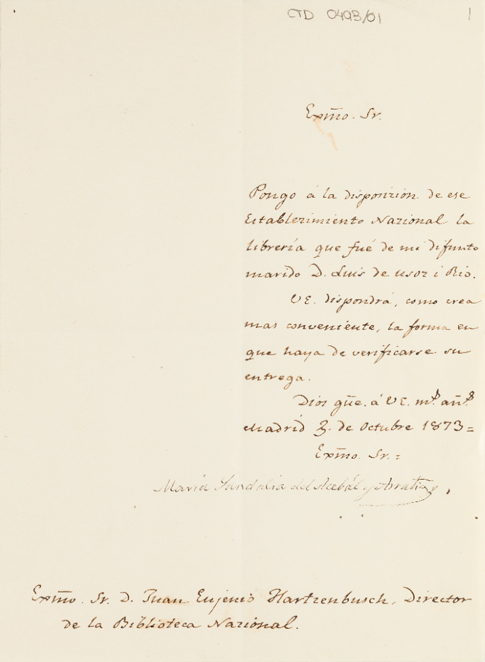 CTD 0493/01
1
Exm̃o. Sr.
Pongo á la disposizión de ese
Establezimiento Nazional la
librería que fué de mi difunto
marido D. Luis de Usoz i Rio.
VE. dispondrá, como crea
mas conveniente, la forma en
que haya de verificarse su
entrega.
Dios gũe. á VE. m.ˢ añ.ˢ
Madrid 3. de Octubre 1873=
Exm̃o. Sr.=
María Sandalia del Acebál y Arratia,
Exm̃o. Sr. D. Juan Eujenio Hartzenbusch, Director
de la Biblioteca Nazional.